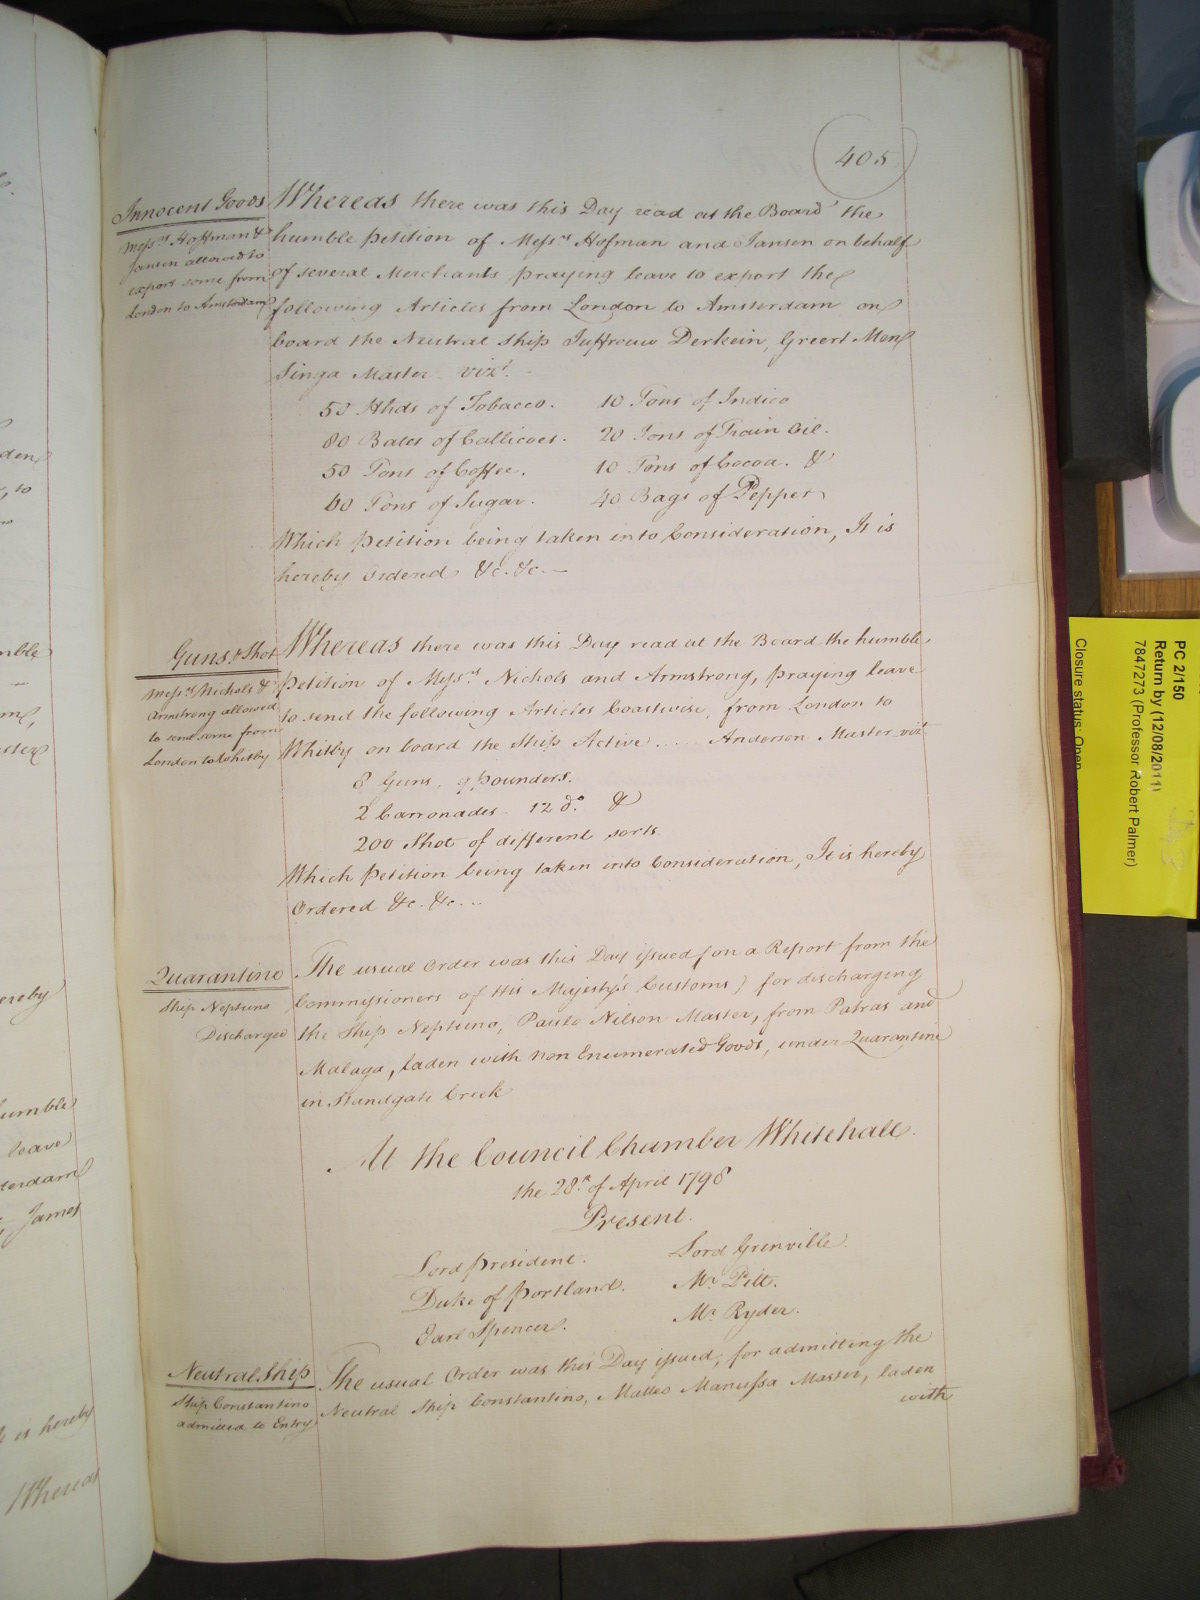 405
Innocent Goods
Mess.rs Hoffman &
Jansen allowed to
export some from
London to Amsterdam
Whereas there was this Day read at the Board the
humble Petition of Mess.rs Hofman and Jansen on behalf
of several Merchants praying leave to export the
following Articles from London to Amsterdam on
board the Neutral Ship Juffrouw Derkein, Greert Men
Singa Master vizt.
50 Hhds of Tobacco. 10 Tons of Indico
80 Bales of Callicoes. 20 Tons of Train Oil.
50 Tons of Coffee. 10 Tons of Cocoa. &
60 Tons of Sugar. 40 Bags of Pepper
Which Petition being taken into Consideration, It is
hereby Ordered &c. &c. —
Guns & Shot
Mess.rs Nichols &
Armstrong allowed
to send some from
London to Whitby
Whereas there was this Day read at the Board the humble
Petition of Mess.rs Nichols and Armstrong, praying leave
to send the following Articles Coastwise, from London to
Whitby on board the Ship Active .... Anderson Master vizt
8 Guns, 9 pounders.
2 Carronades 12 do. &
200 Shot of different sorts.
Which Petition being taken into Consideration, It is hereby
Ordered &c. &c. --
Quarantine
Ship Neptuno
Discharged
The usual Order was this Day issued (on a Report from the
Commissioners of His Majesty's Customs) for discharging
the Ship Neptuno, Paulo Nilson Master, from Patras and
Malaga, laden with non Enumerated Goods, under Quarantine
in Standgate Creek
At the Council Chamber Whitehall.
the 28th of April 1798
Present.
Lord President. Lord Grenville.
Duke of Portland. Mr. Pitt.
Earl Spencer. Mr. Ryder.
Neutral Ship
Ship Constantino
admitted to Entry
The usual Order was this Day issued, for admitting the
Neutral Ship Constantino, Matteo Manussa Master, laden
with
den
, to
mble
ereby
umble
leave
terdam
James
is hereby
Whereas
PC 2/150
Return by (12/08/2011)
7847273 (Professor Robert Palmer)
Closure status: Open